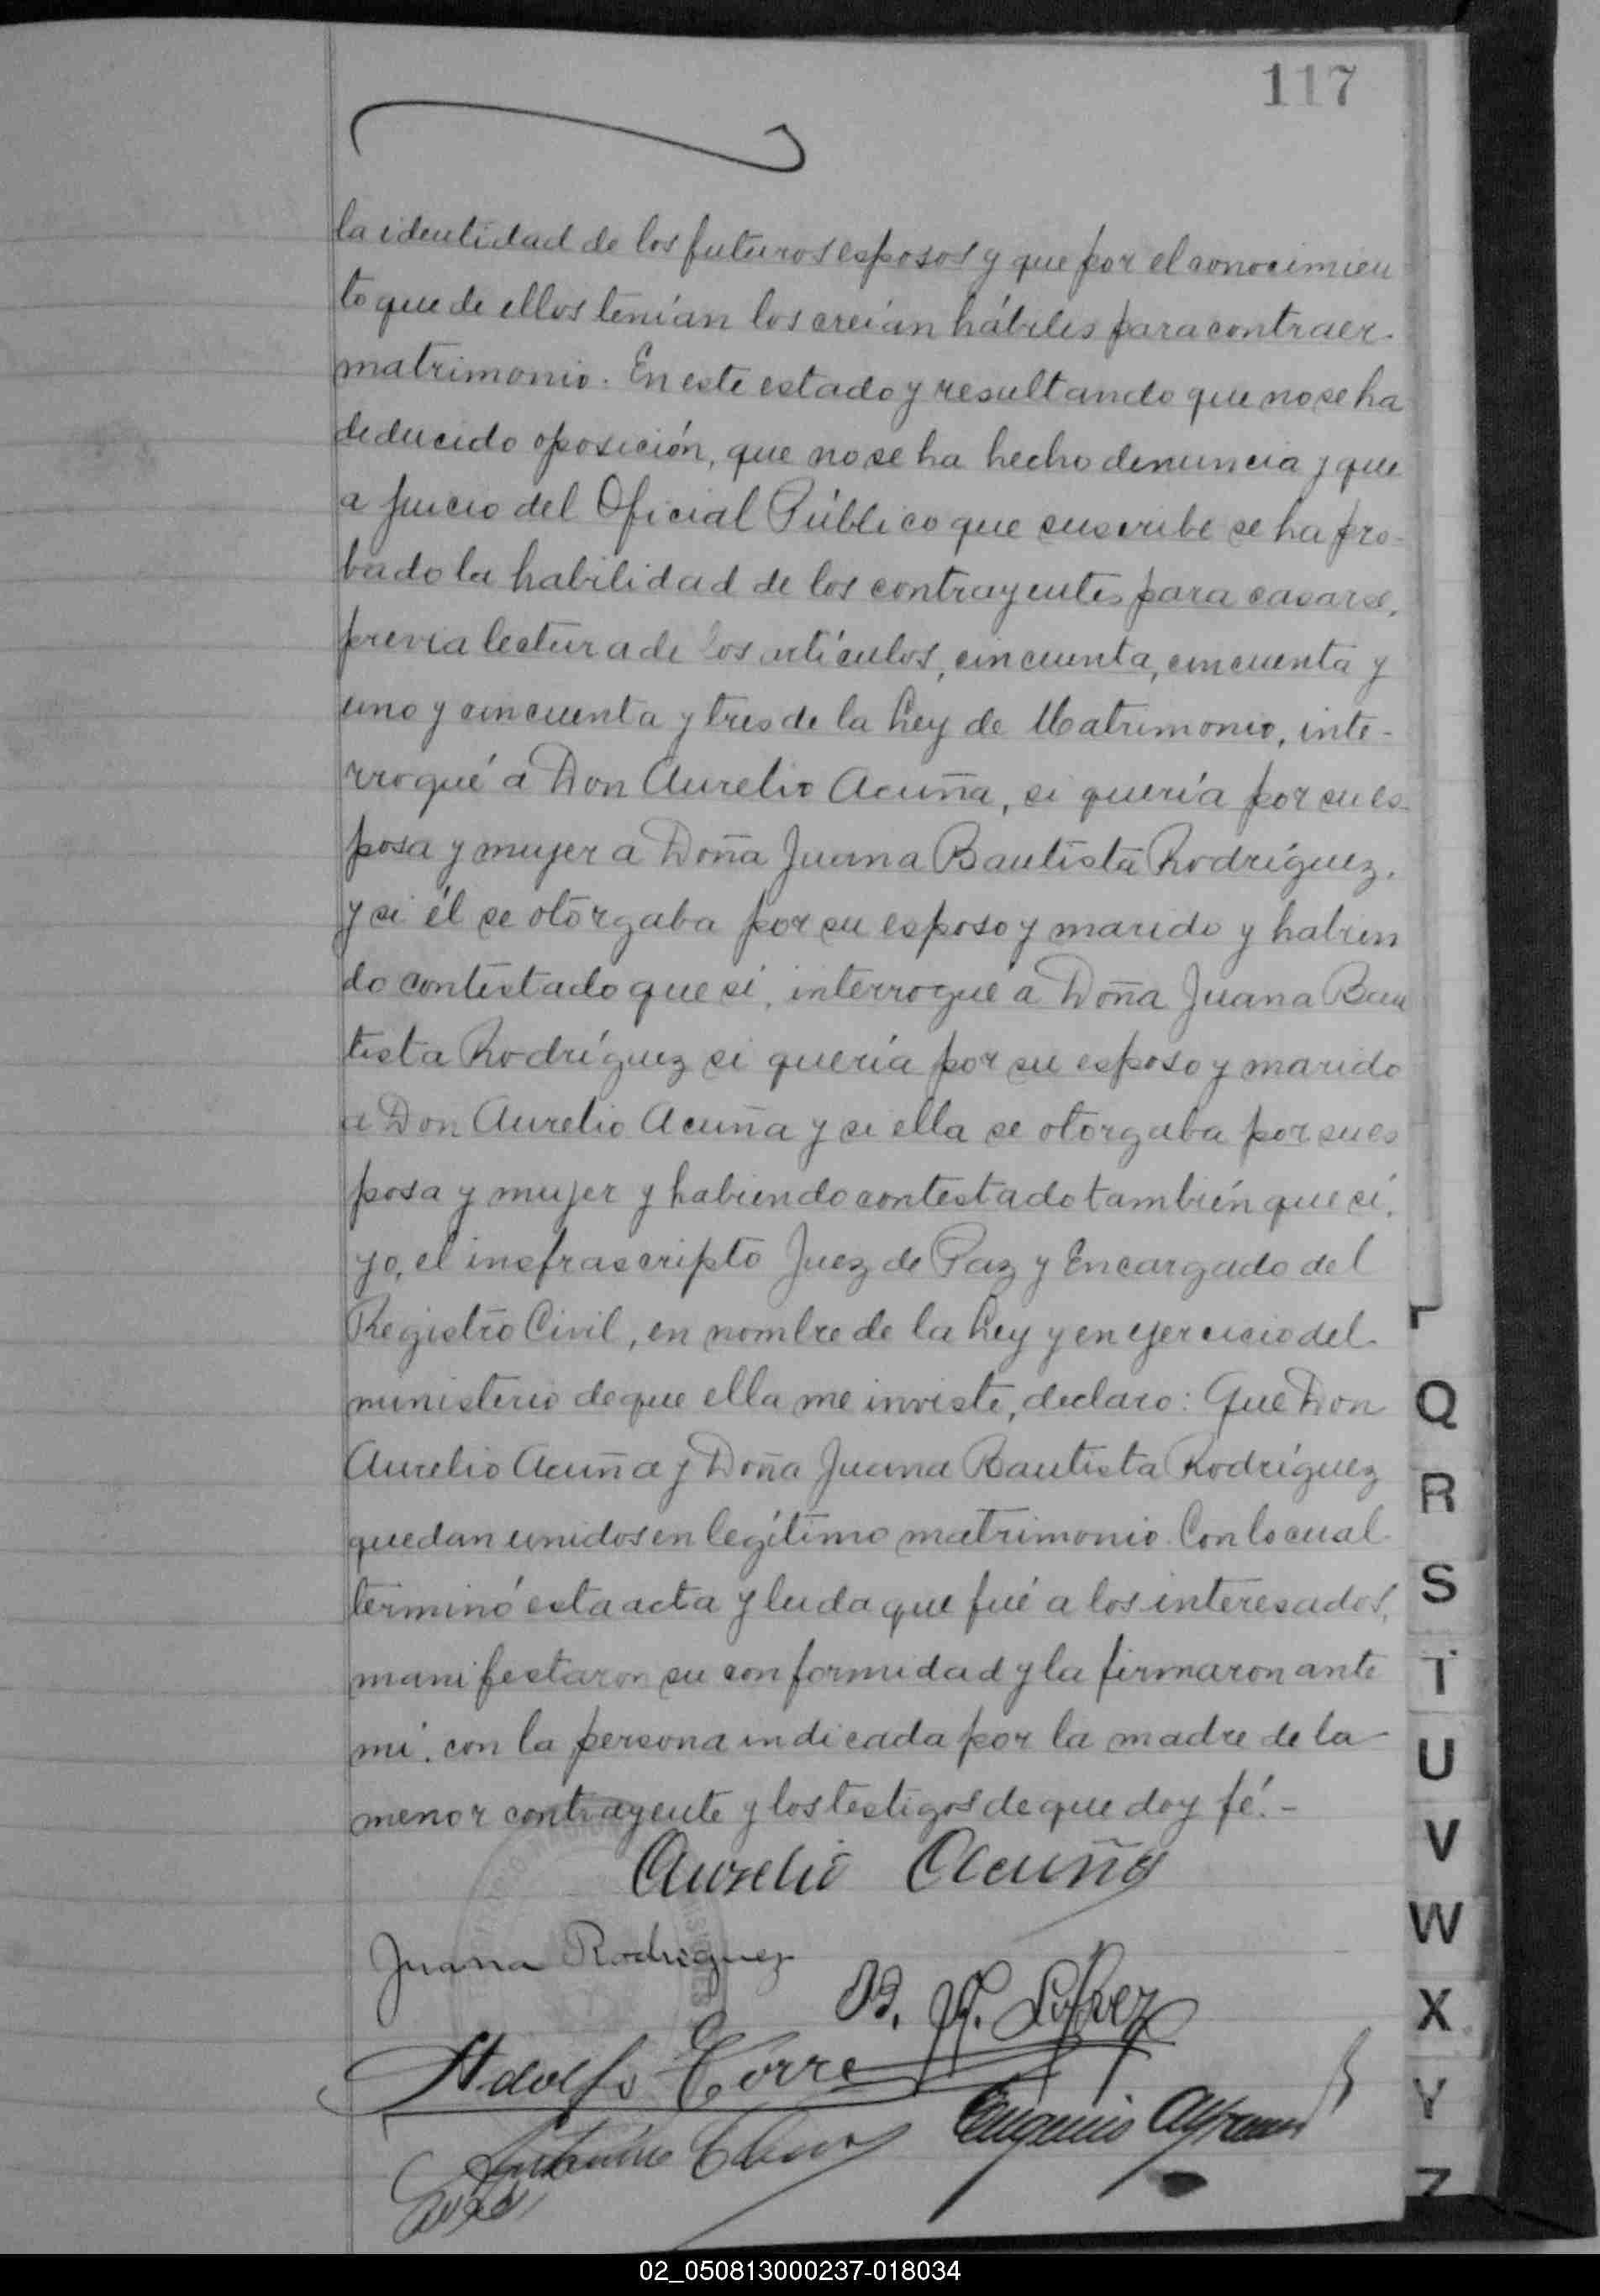 117
la identidad de los futuros esposos y que por el conocimien
to que de ellos tenían los creían hábiles para contraer
matrimonio. En este estado y resultando que no se ha
deducido oposición, que no se ha hecho denuncia y que
a juicio del Oficial Público que suscribe se ha pro-
bado la habilidad de los contrayentes para casarse,
previa lectura de los artículos, cincuenta, cincuenta y
uno y cincuenta y tres de la Ley de Matrimonio, inte-
rrogué a Don Aurelio Acuña, si quería por su es-
posa y mujer a Doña Juana Bautista Rodríguez,
y si él se otorgaba por su esposo y marido y habien
do contestado que si, interrogué a Doña Juana Bau
tista Rodríguez si quería por su esposo y marido
a Don Aurelio Acuña y si ella se otorgaba por su es
posa y mujer y habiendo contestado también que sí,
yo, el insfrascripto Juez de Paz y Encargado del
Registro Civil, en nombre de la Ley y en ejercicio del
ministerio de que ella me inviste, declaro: Que Don
Aurelio Acuña y Doña Juana Bautista Rodríguez
quedan unidos en legítimo matrimonio. Con lo cual
terminó esta acta y leida que fué a los interesados,
manifestaron su conformidad y la firmaron ante
mi, con la persona indicada por la madre de la
menor contrayente y los testigos de que doy fé.-
Aurelio Acuña
Juana Rodriguez
Adolfo Torre
Eugenio
Q
R
S
T
U
V
W
X
Y
Z
02_050813000237-018034